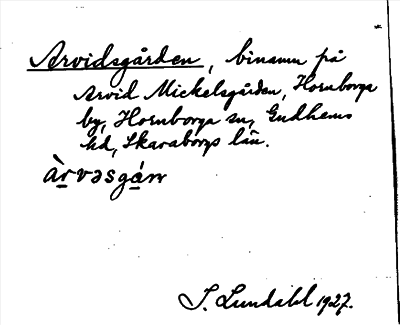 Arvidsgården, binamn på
Arvid Mickelsgården, Hornborga
by, Hornborga sn, Gudhems
hd, Skaraborgs län.
àrvəsgán
I. Lundahl 1927.